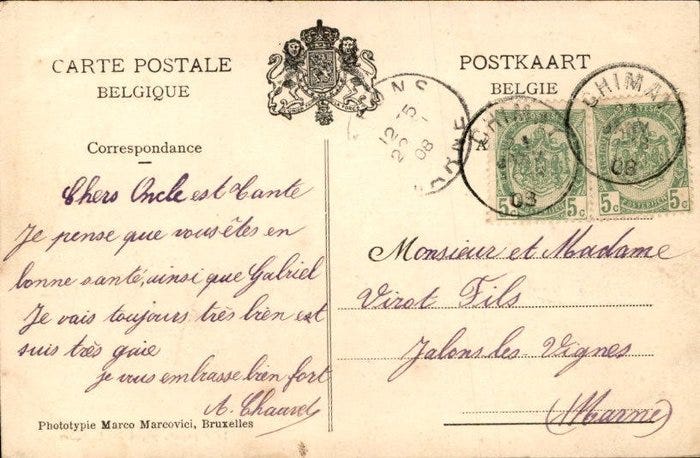 CARTE POSTALE
BELGIQUE
POSTKAART
BELGIE
Correspondance
Chers Oncle est Tante
Je pense que vous êtes en
bonne santé, ainsi que Gabriel
Je vais toujours très bien est
suis très gaie
je vous embrasse bien fort
A. Chauvel
Phototypie Marco Marcovici, Bruxelles
12-15
08
CHIMAY
08
CHIMAY
08
5c 5c
5c 5c
Monsieur et Madame
Virot Fils
Jalons les Vignes
(Marne)